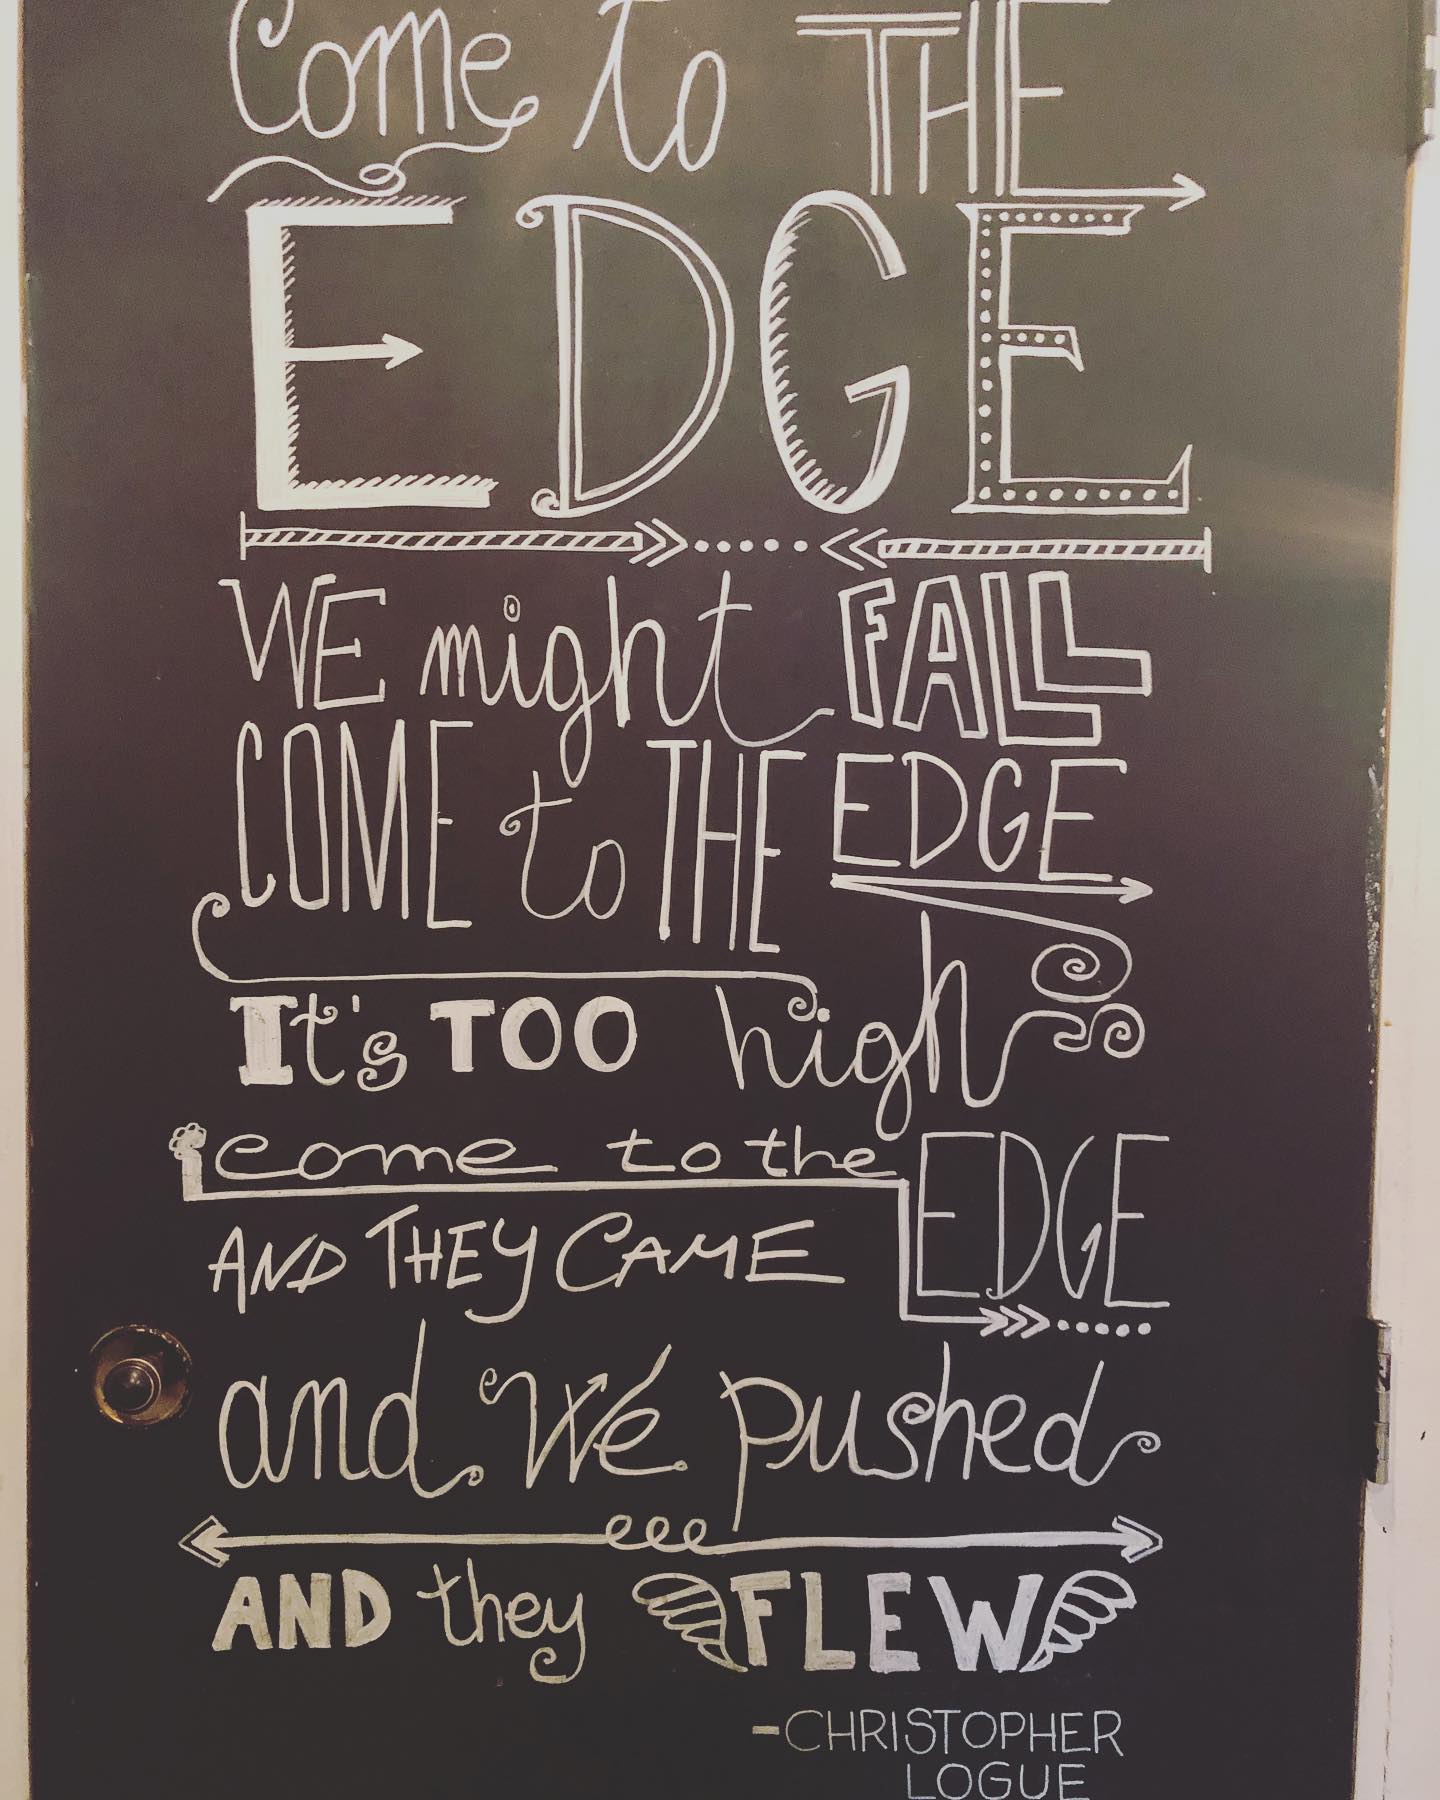 Come to THE
EDGE
WE might FALL
COME to THE EDGE
It's TOO high
come to the EDGE
AND THEY CAME
and we pushed
AND they FLEW
-CHRISTOPHER
LOGUE